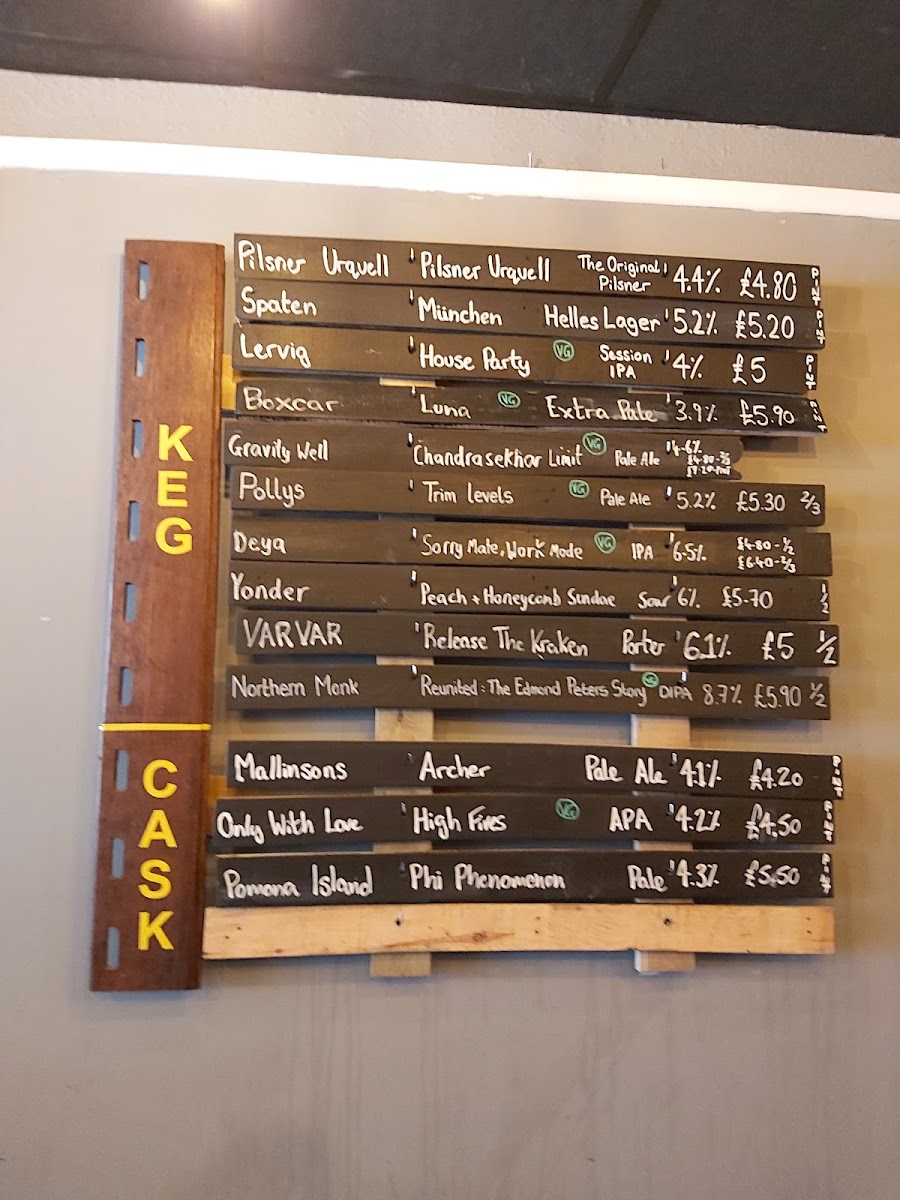 KEG
Pilsner Urquell Pilsner Urquell The Original Pilsner 4.4% £4.80 PINT
Spaten München Helles Lager 5.2% £5.20 PINT
Lervig House Party VG Session IPA 4% £5 PINT
Boxcar Luna VG Extra Pale 3.9% £5.90 PINT
Gravity Well Chandrasekhar Limit VG Pale Ale 4.6% £4.80-2/3
Pollys Trim levels VG Pale Ale 5.2% £5.30 2/3
Deya Sorry Mate, Work Mode VG IPA 6.5% £4.80-1/2 £6.40-2/3
Yonder Peach + Honeycomb Sundae Sour 6% £5.70 1/2
VARVAR Release The Kraken Porter 6.1% £5 1/2
Northern Monk Reunited: The Edmond Peters Story VG DIPA 8.7% £5.90 1/2
CASK
Mallinsons Archer Pale Ale 4.1% £4.20 PINT
Only With Love High Fives VG APA 4.2% £4.50 PINT
Pomona Island Phi Phenomenon Pale 4.3% £5.50 PINT